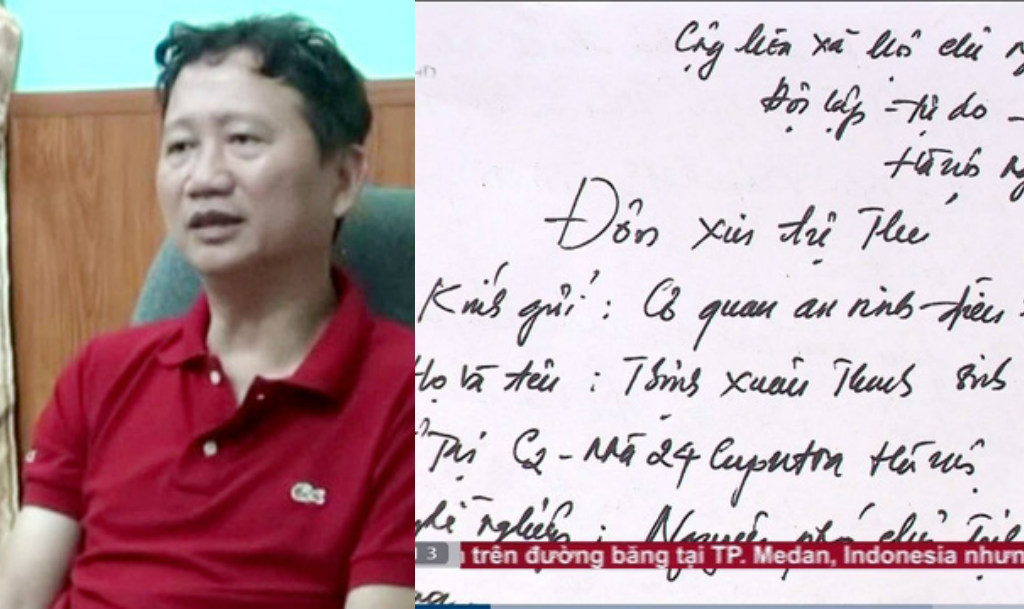 Cộng hòa xã hội chủ ng
Độc lập - tự do -
Hà nội ng
Đơn xin tự Thú
Kính gửi : Cơ quan an ninh - điều
Họ và tên : Trịnh Xuân Thanh sinh
Tại C2 - Nhà 24 Ciputra Hà nội
nghề nghiệp : Nguyên phó chủ
13 trên đường băng tại TP. Medan, Indonesia nhưn